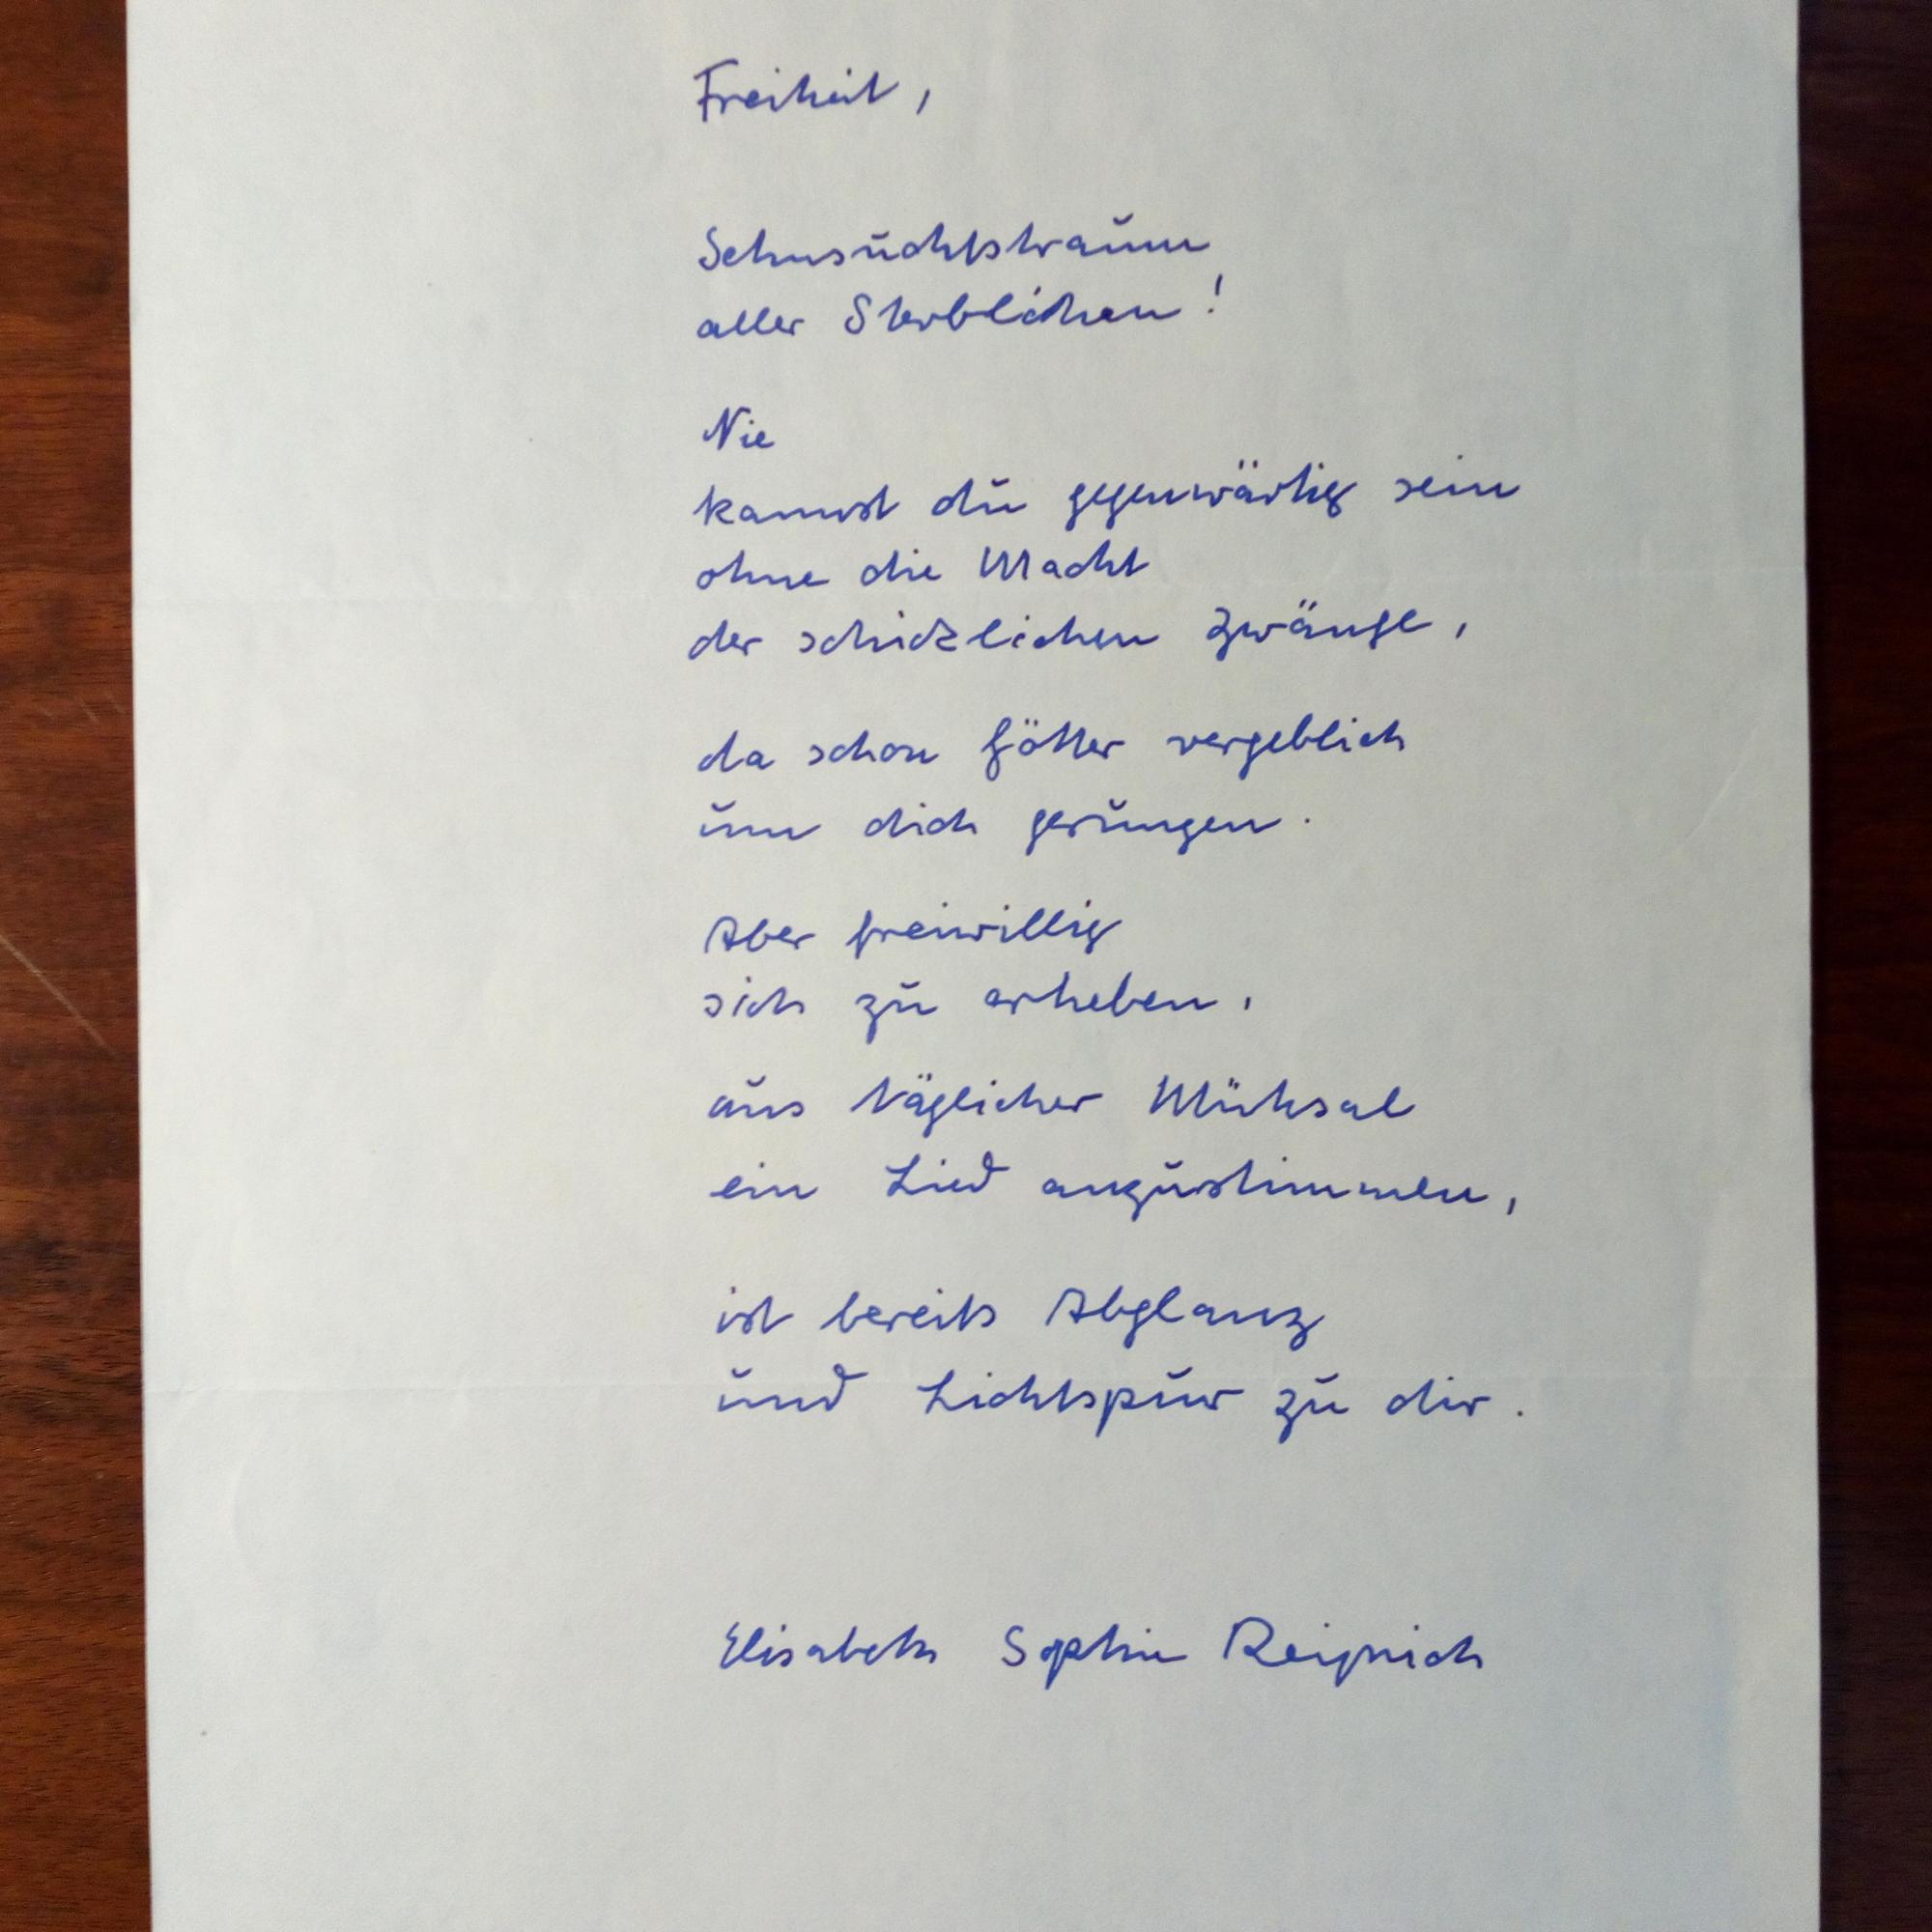 Freiheit,
Sehnsuchtstraum
aller Sterblichen!
Nie
kannst du gegenwärtig sein
ohne die Macht
der schicklichen Zwänge,
da schon Götter vergeblich
um dich gerungen.
Aber freiwillig
sich zu erheben,
aus täglicher Mühsal
ein Lied anzustimmen,
ist bereits Abglanz
und Lichtspur zu dir.
Elisabeth Sophie